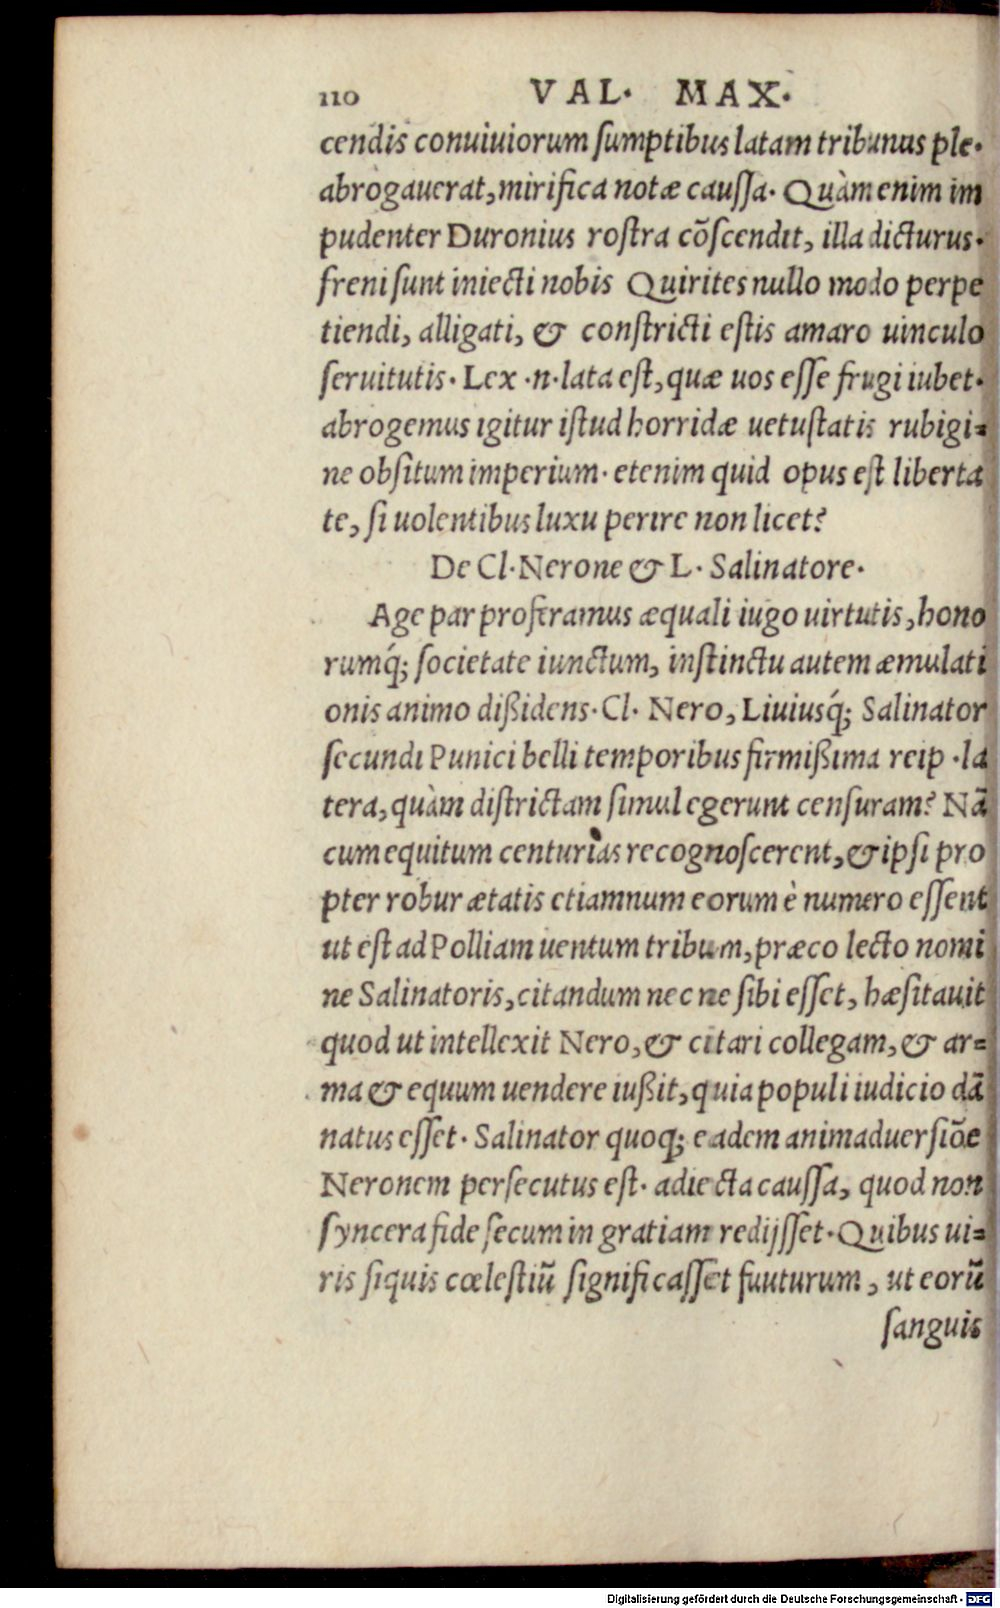 110 VAL. MAX.
cendis conuiuiorum ſumptibus latam tribunus ple.
abrogauerat, mirifica notæ cauſſa. Quàm enim im
pudenter Duronius roſtra cõſcendit, illa dicturus.
freni ſunt iniecti nobis Quirites nullo modo perpe
tiendi, alligati, & conſtricti eſtis amaro uinculo
ſeruitutis. Lex .n. lata eſt, quæ uos eſſe frugi iubet.
abrogemus igitur iſtud horridæ uetuſtatis rubigi-
ne obſitum imperium. etenim quid opus eſt liberta
te, ſi uolentibus luxu perire non licet?
De Cl. Nerone & L. Salinatore.
Age par proferamus æquali iugo uirtutis, hono
rumq́; ſocietate iunctum, inſtinctu autem æmulati
onis animo dißidens. Cl. Nero, Liuiusq́; Salinator
ſecundi Punici belli temporibus firmißima reip .la
tera, quàm diſtrictam ſimul egerunt cenſuram? Nã
cum equitum centurias recognoſcerent, & ipſi pro
pter robur ætatis etiamnum eorum è numero eſſent
ut eſt ad Polliam uentum tribum, præco lecto nomi
ne Salinatoris, citandum nec ne ſibi eſſet, hæſitauit
quod ut intellexit Nero, & citari collegam, & ar-
ma & equum uendere iußit, quia populi iudicio dã
natus eſſet. Salinator quoq; eadem animaduerſiõe
Neronem perſecutus eſt. adiecta cauſſa, quod non
ſyncera fide ſecum in gratiam redijſſet. Quibus ui-
ris ſiquis cœleſtiũ ſignificaſſet fuuturum, ut eorũ
ſanguis
Digitalisierung gefördert durch die Deutsche Forschungsgemeinschaft - DFG